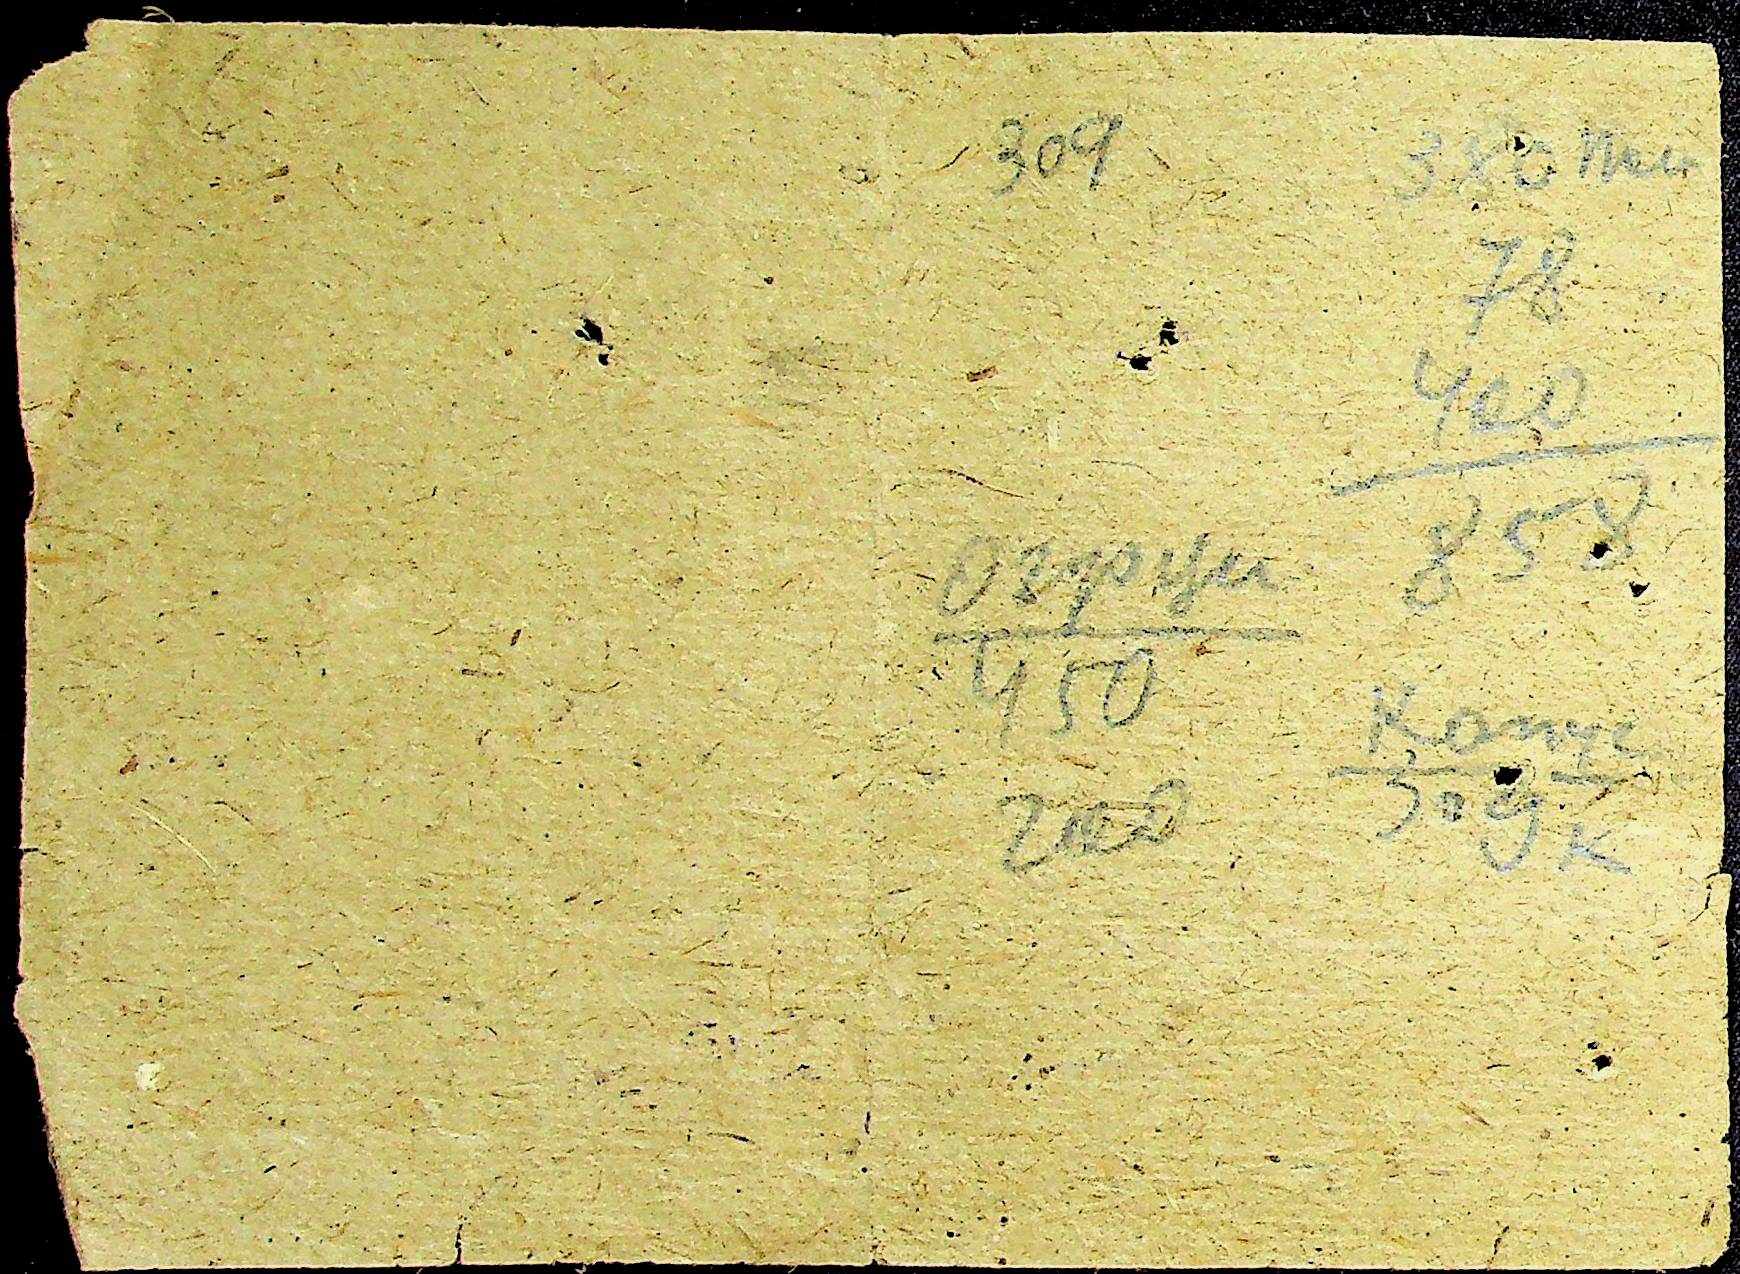 309
380
78
400
858
Огурцы
450
200
Капус